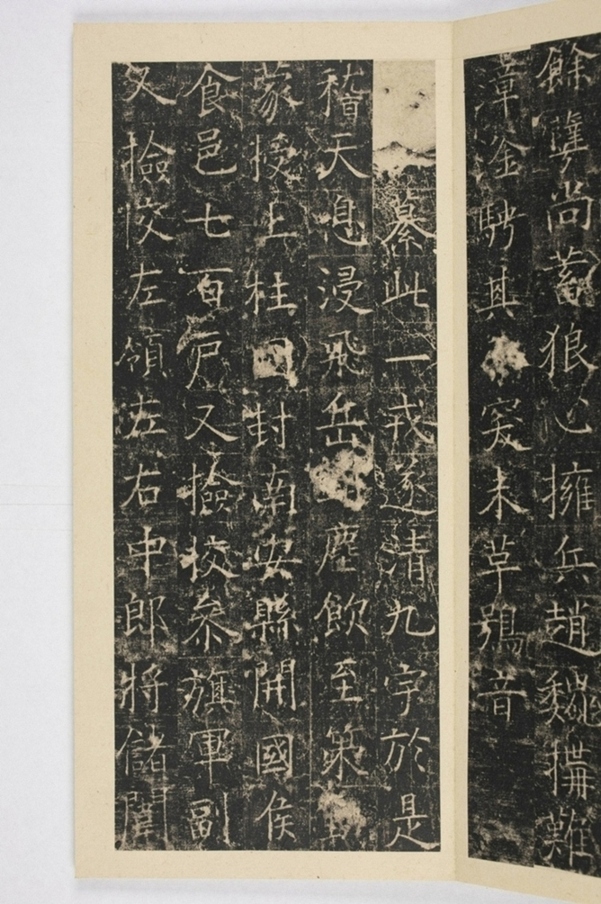 餘孽尚蓄狼心擁兵趙魏搆難
漳滏騁其窫未草鴞音
纂此一戎遂清九宇於是
稽天息浸飛岳塵飲至策
蒙授上柱國封南安縣開國侯
食邑七百戶又撿挍叅旗軍副
又撿挍左領左右中郎將儲闈